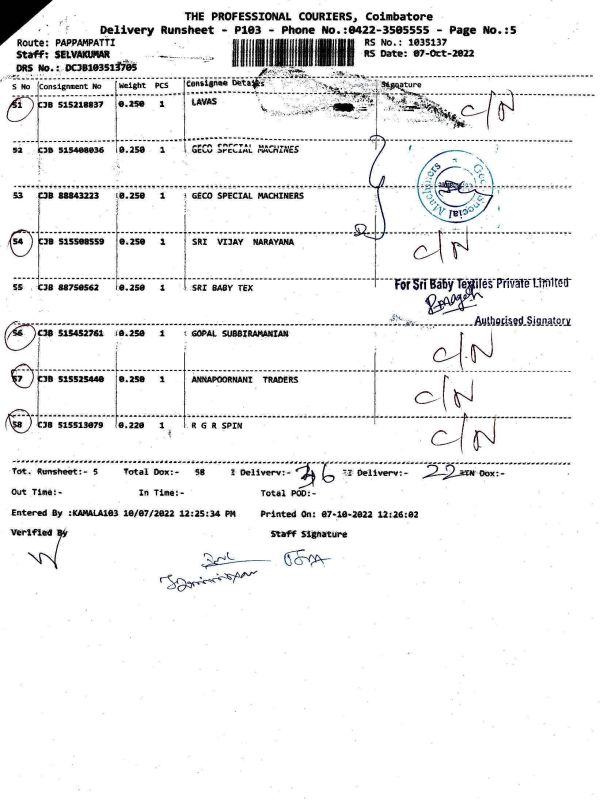 THE PROFESSIONAL COURIERS, Coimbatore
Delivery Runsheet - P103 - Phone No.:0422-3505555 - Page No.:5
Route: PAPPAMPATTI RS No.: 1035137
Staff: SELVAKUMAR RS Date: 07-Oct-2022
DRS No.: DCJB103513705
S No Consignment No Weight PCS Consignee Details Signature
51 CJB 515218837 0.250 1 LAVAS C/N
52 CJB 515408036 0.250 1 GECO SPECIAL MACHINES
Geco Special Machiners
53 CJB 88843223 0.250 1 GECO SPECIAL MACHINERS
54 CJB 515508559 0.250 1 SRI VIJAY NARAYANA C/N
55 CJB 88750562 0.250 1 SRI BABY TEX For Sri Baby Textiles Private Limited
Authorised Signatory
56 CJB 515452761 0.250 1 GOPAL SUBBIRAMANIAN C/N
57 CJB 515525440 0.250 1 ANNAPOORNANI TRADERS C/N
58 CJB 515513079 0.220 1 R G R SPIN C/N
Tot. Runsheet:- 5 Total Dox:- 58 I Delivery:- 36 II Delivery:- 22 RTN Dox:-
Out Time:- In Time:- Total POD:-
Entered By :KAMALA103 10/07/2022 12:25:34 PM Printed On: 07-10-2022 12:26:02
Verified By Staff Signature